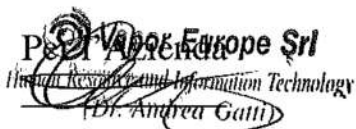 Per l'Azienda
Vapor Europe Srl
Human Resource and Information Technology
(Dr. Andrea Gatti)